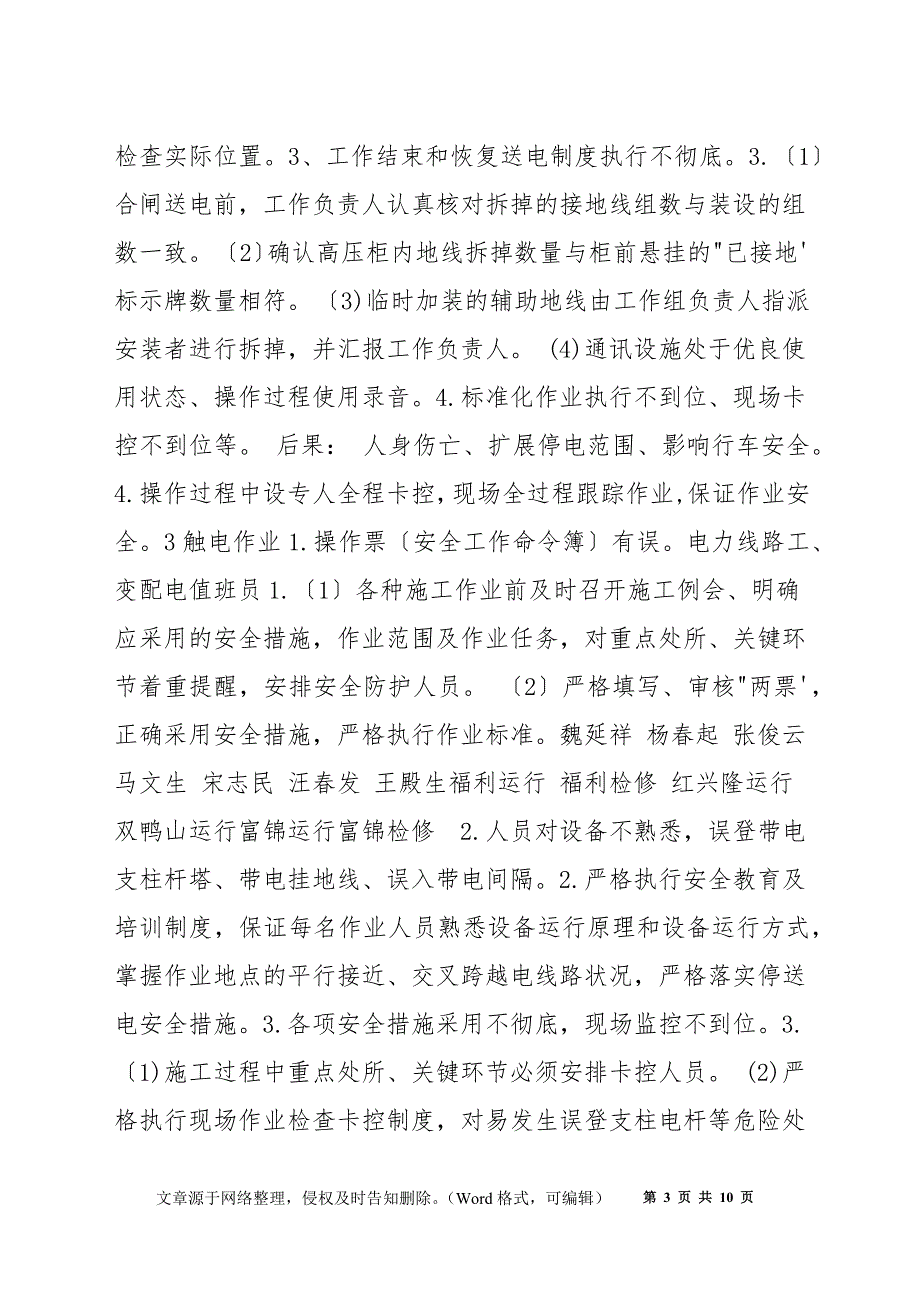 检查实际位置。3、工作结束和恢复送电制度执行不彻底。3.〔1〕
合闸送电前，工作负责人认真核对拆掉的接地线组数与装设的组
数一致。〔2〕确认高压柜内地线拆掉数量与柜前悬挂的"已接地'
标示牌数量相符。〔3)临时加装的辅助地线由工作组负责人指派
安装者进行拆掉，并汇报工作负责人。 (4)通讯设施处于优良使
用状态、操作过程使用录音。4.标准化作业执行不到位、现场卡
控不到位等。 后果： 人身伤亡、扩展停电范围、影响行车安全。
4.操作过程中设专人全程卡控，现场全过程跟踪作业,保证作业安
全。3 触电作业 1.操作票〔安全工作命令簿〕有误。电力线路工、
变配电值班员 1.〔1〕各种施工作业前及时召开施工例会、明确
应采用的安全措施，作业范围及作业任务，对重点处所、关键环
节着重提醒，安排安全防护人员。 〔2〕严格填写、审核"两票'，
正确采用安全措施，严格执行作业标准。魏延祥 杨春起 张俊云
马文生 宋志民 汪春发 王殿生福利运行 福利检修 红兴隆运行
双鸭山运行富锦运行富锦检修 2.人员对设备不熟悉，误登带电
支柱杆塔、带电挂地线、误入带电间隔。2.严格执行安全教育及
培训制度，保证每名作业人员熟悉设备运行原理和设备运行方式，
掌握作业地点的平行接近、交叉跨越电线路状况，严格落实停送
电安全措施。3.各项安全措施采用不彻底，现场监控不到位。3.
〔1)施工过程中重点处所、关键环节必须安排卡控人员。 (2)严
格执行现场作业检查卡控制度，对易发生误登支柱电杆等危险处
文章源于网络整理，侵权及时告知删除。（Word 格式，可编辑） 第 3 页 共 10 页